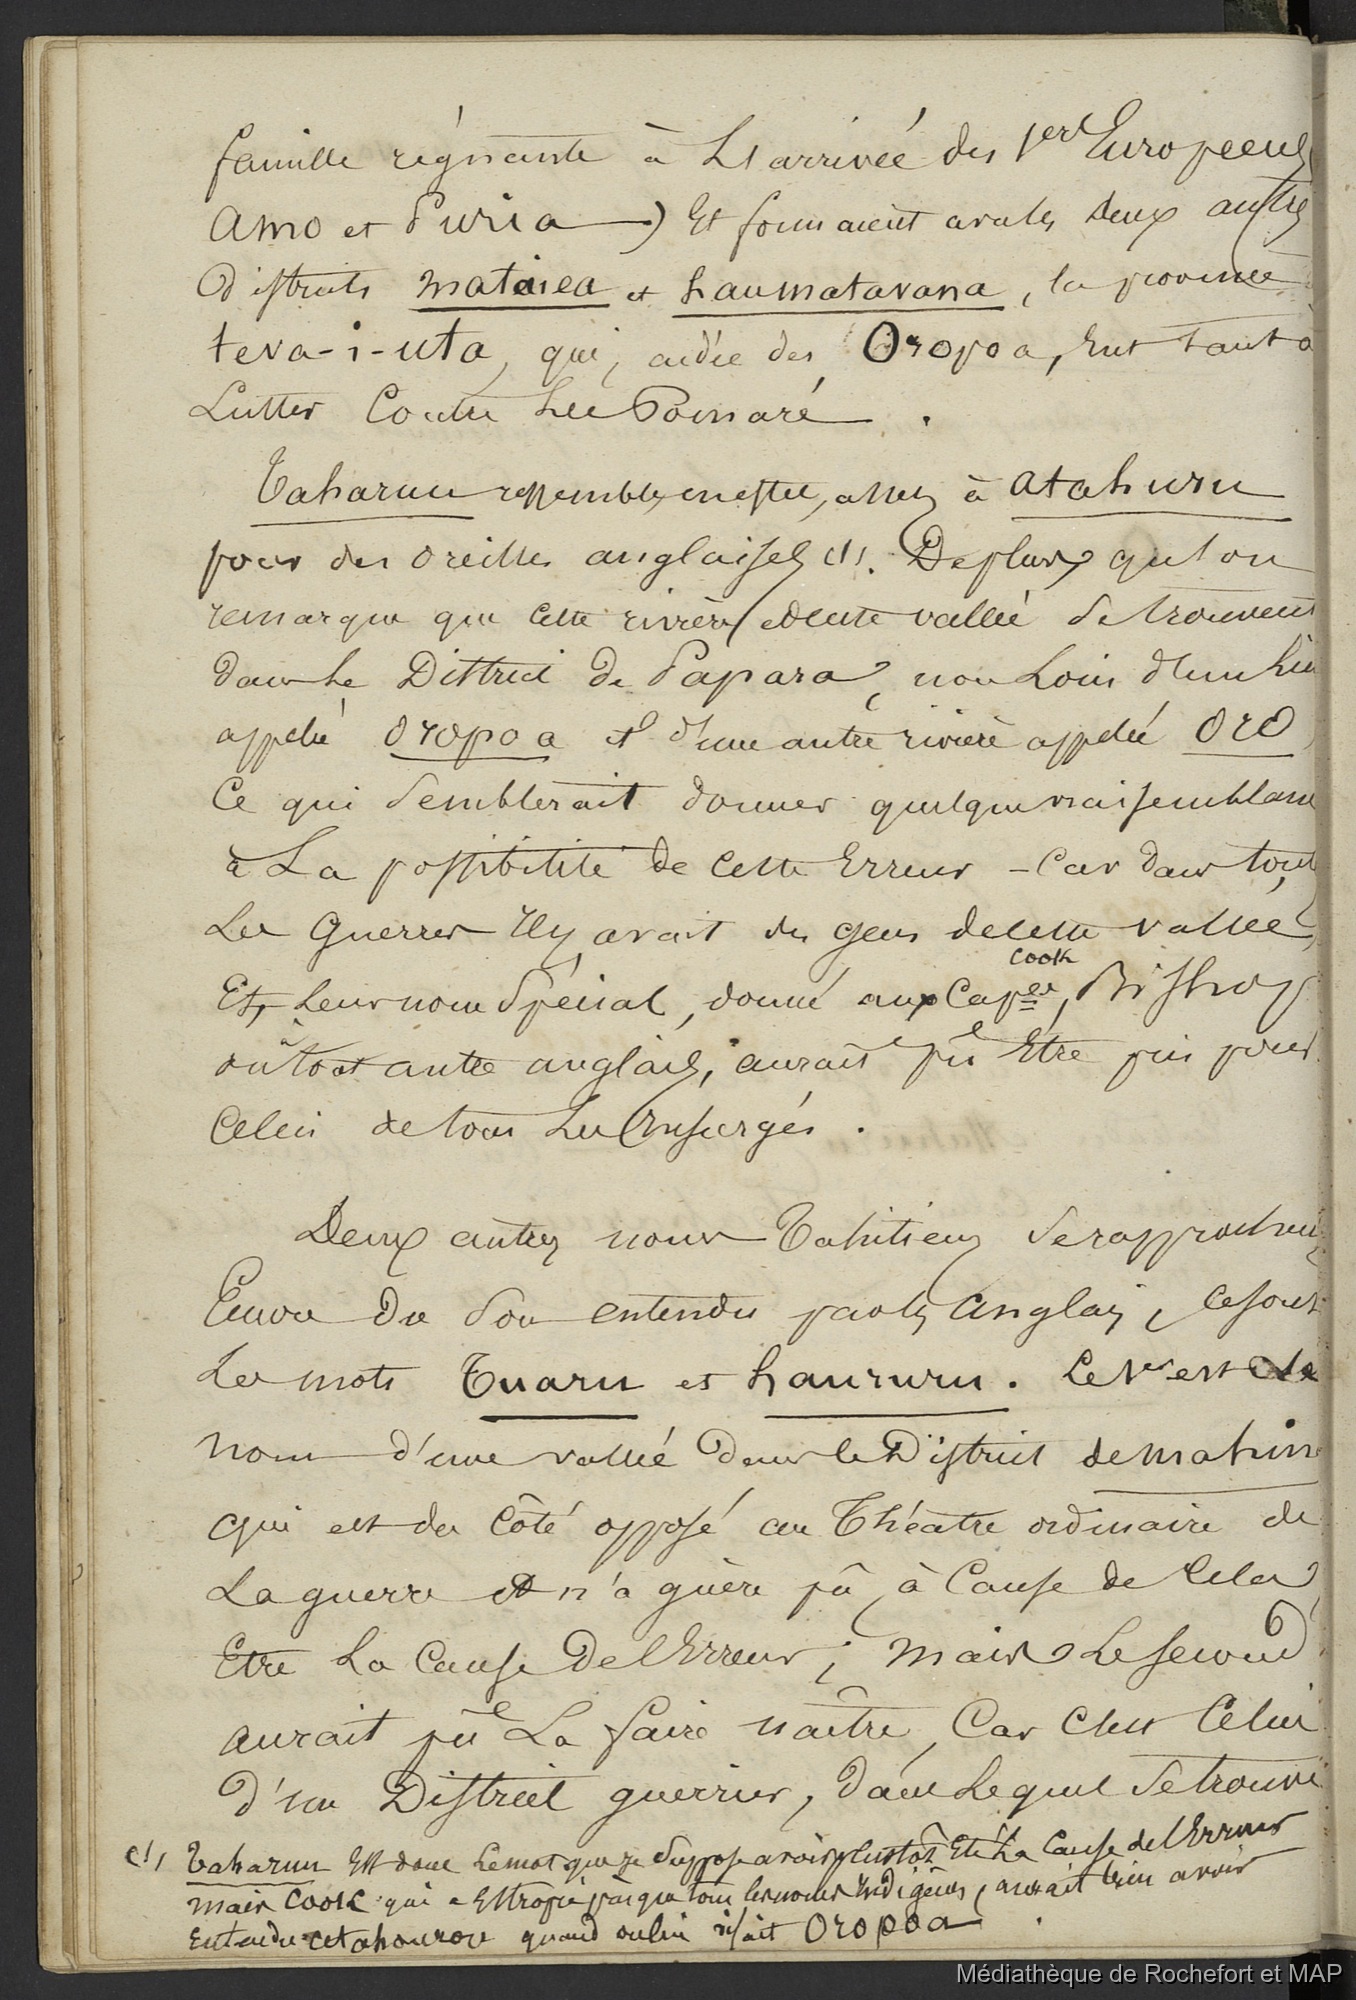 famille régnante à L'arrivée des 1ers Européens
Amo et Puria ) Et formaient avec les deux autres
Districts mataiea et haumatavana, la province
teva-i-uta, qui, aidée des Oropoa, Eut tant à
Lutter Contre Les Pomaré .
Taharuu ressemble, en effet, assez à atahuru
pour des oreilles anglaises (1). De plus, que l'on
remarque que cette rivière et cette vallée se trouvent
dans Le District de Papara, non Loin d'un Lieu
appelé oropoa et d'une autre rivière appelée oro
Ce qui semblerait donner quelque vraisemblance
à La possibilité de cette Erreur - Car dans toutes
Les Guerres Il y avait des gens de cette vallée,
Cook
Et, Leur nom Spécial, donné aux Capes, Bishop
où tout autre anglais, aurait pû Etre pris pour
Celui de tous Les Insurgés .
Deux autres noms Tahitiens se rapprochent
Encore du Son entendu par les Anglais, ce sont
Les mots Tuaru et haururu. Le 1er est Le
nom d'une vallée dans le District de mahina
qui est du Côté opposé au Théatre ordinaire de
La guerre et n'a guère pû, à Cause de Cela,
Etre La Cause De l'Erreur ; mais Le second
aurait pû La faire naître, Car C'est Celui
d'un District guerrier, dans Lequel se trouve
(1) Taharuu Est donc Le mot que je Suppose avoir plustôt Eté La Cause de l'Erreur
mais Cook qui a Estropié presque tous les noms Indigènes, aurait bien avoir
Entendu atahourou quand on lui disait Oropoa .
Médiathèque de Rochefort et MAP